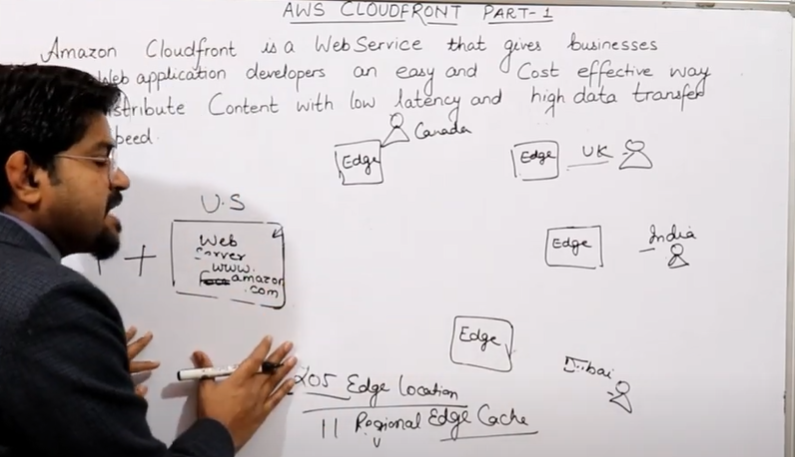 AWS CLOUDFRONT PART-1
Amazon Cloudfront is a Web Service that gives businesses
Web application developers an easy and Cost effective way
stribute Content with low latency and high data transfer
peed
Edge Canada
Edge UK
U.S
Web
Server
www.
amazon
.com
Edge India
Edge
Dubai
205 Edge Location
11 Regional Edge Cache